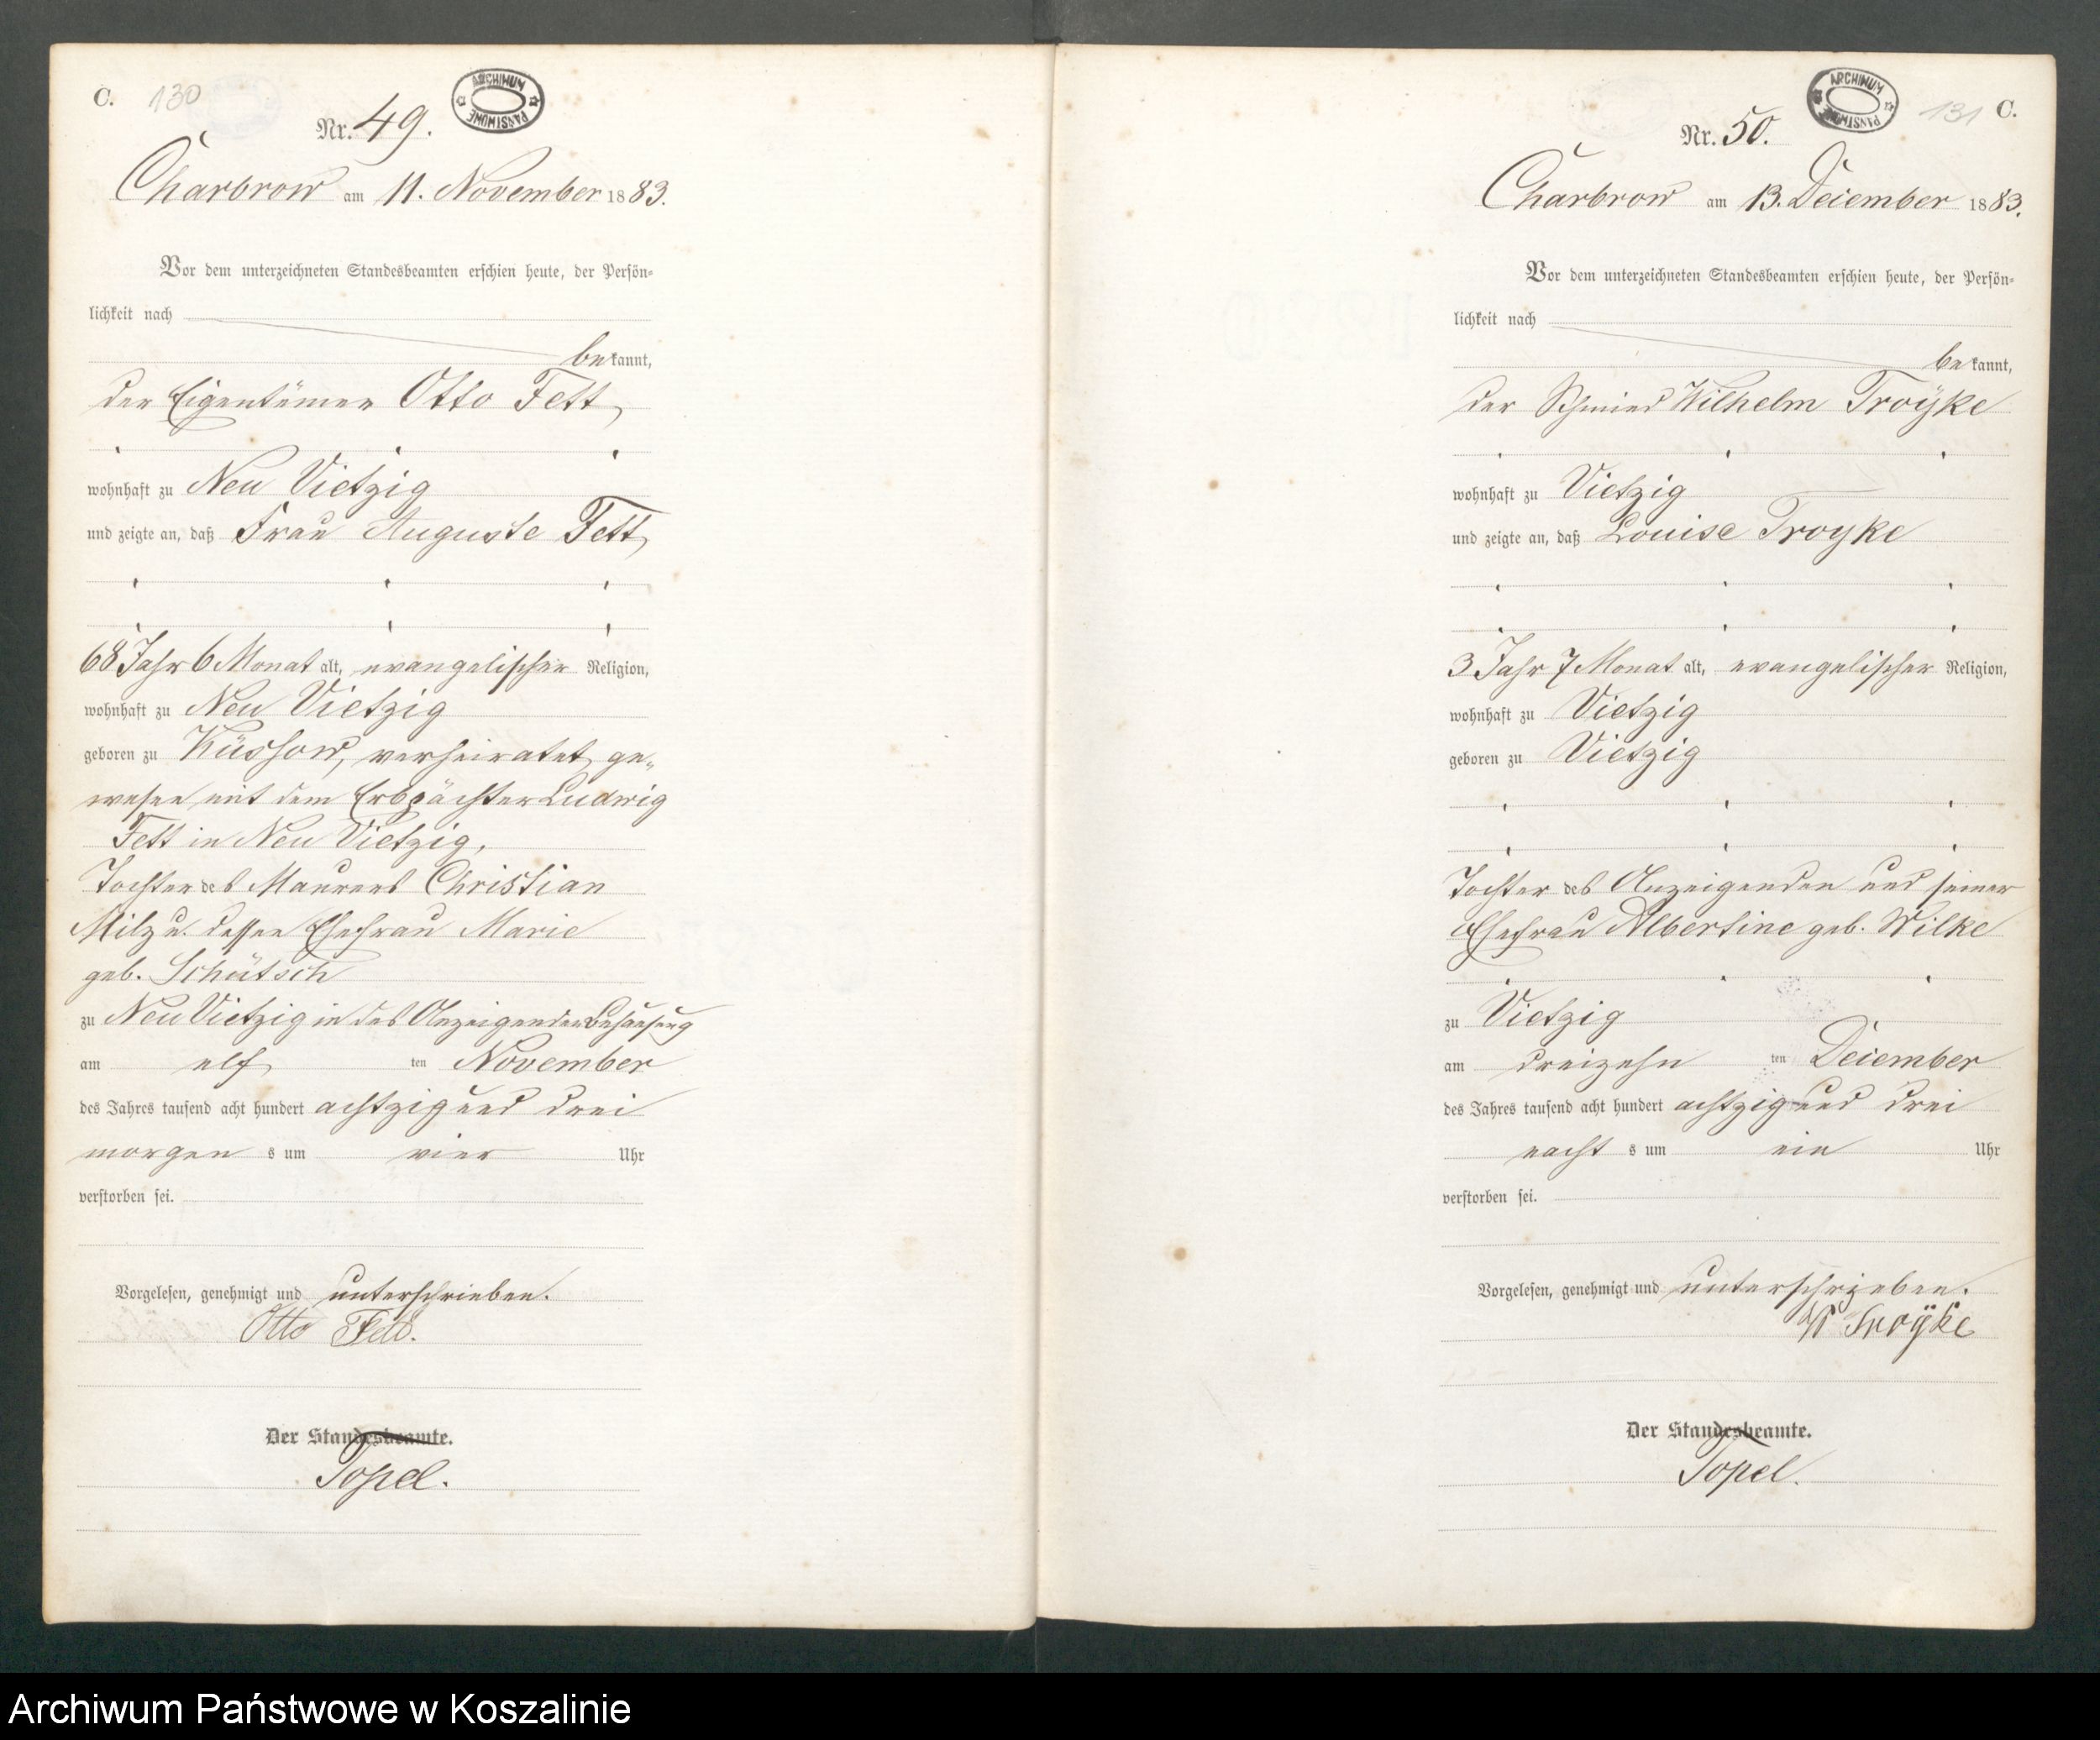 C. 130
ARCHIWUM PAŃSTWOWE
Nr. 49.
Charbrow am 11. November 1883.
Vor dem unterzeichneten Standesbeamten erschien heute, der Persön-
lichkeit nach
bekannt,
der Eigentümer Otto Fett,
wohnhaft zu Neu Vietzig
und zeigte an, daß Frau Auguste Fett,
68 Jahr 6 Monat alt, evangelischer Religion,
wohnhaft zu Neu Vietzig
geboren zu Küssow, verheiratet ge-
wesen mit dem Erbpächter Ludwig
Fett in Neu Vietzig,
Tochter des Maurers Christian
Milz u. dessen Ehefrau Marie
geb. Schütsch
zu Neu Vietzig in des Anzeigenden Behausung
am elf ten November
des Jahres tausend acht hundert achtzig und drei
morgens um vier Uhr
verstorben sei.
Vorgelesen, genehmigt und unterschrieben.
Otto Fett.
Der Standesbeamte.
Topel.
ARCHIWUM PAŃSTWOWE
131 C.
Nr. 50.
Charbrow am 13. December 1883.
Vor dem unterzeichneten Standesbeamten erschien heute, der Persön-
lichkeit nach
bekannt,
der Schmied Wilhelm Troÿke
wohnhaft zu Vietzig
und zeigte an, daß Louise Troyke
3 Jahr 7 Monat alt, evangelischer Religion,
wohnhaft zu Vietzig
geboren zu Vietzig
Tochter des Anzeigenden und seiner
Ehefrau Albertine geb. Wilke
zu Vietzig
am dreizehn ten December
des Jahres tausend acht hundert achtzig und drei
nachts um ein Uhr
verstorben sei.
Vorgelesen, genehmigt und unterschrieben.
W Troÿke
Der Standesbeamte.
Topel.
Archiwum Państwowe w Koszalinie